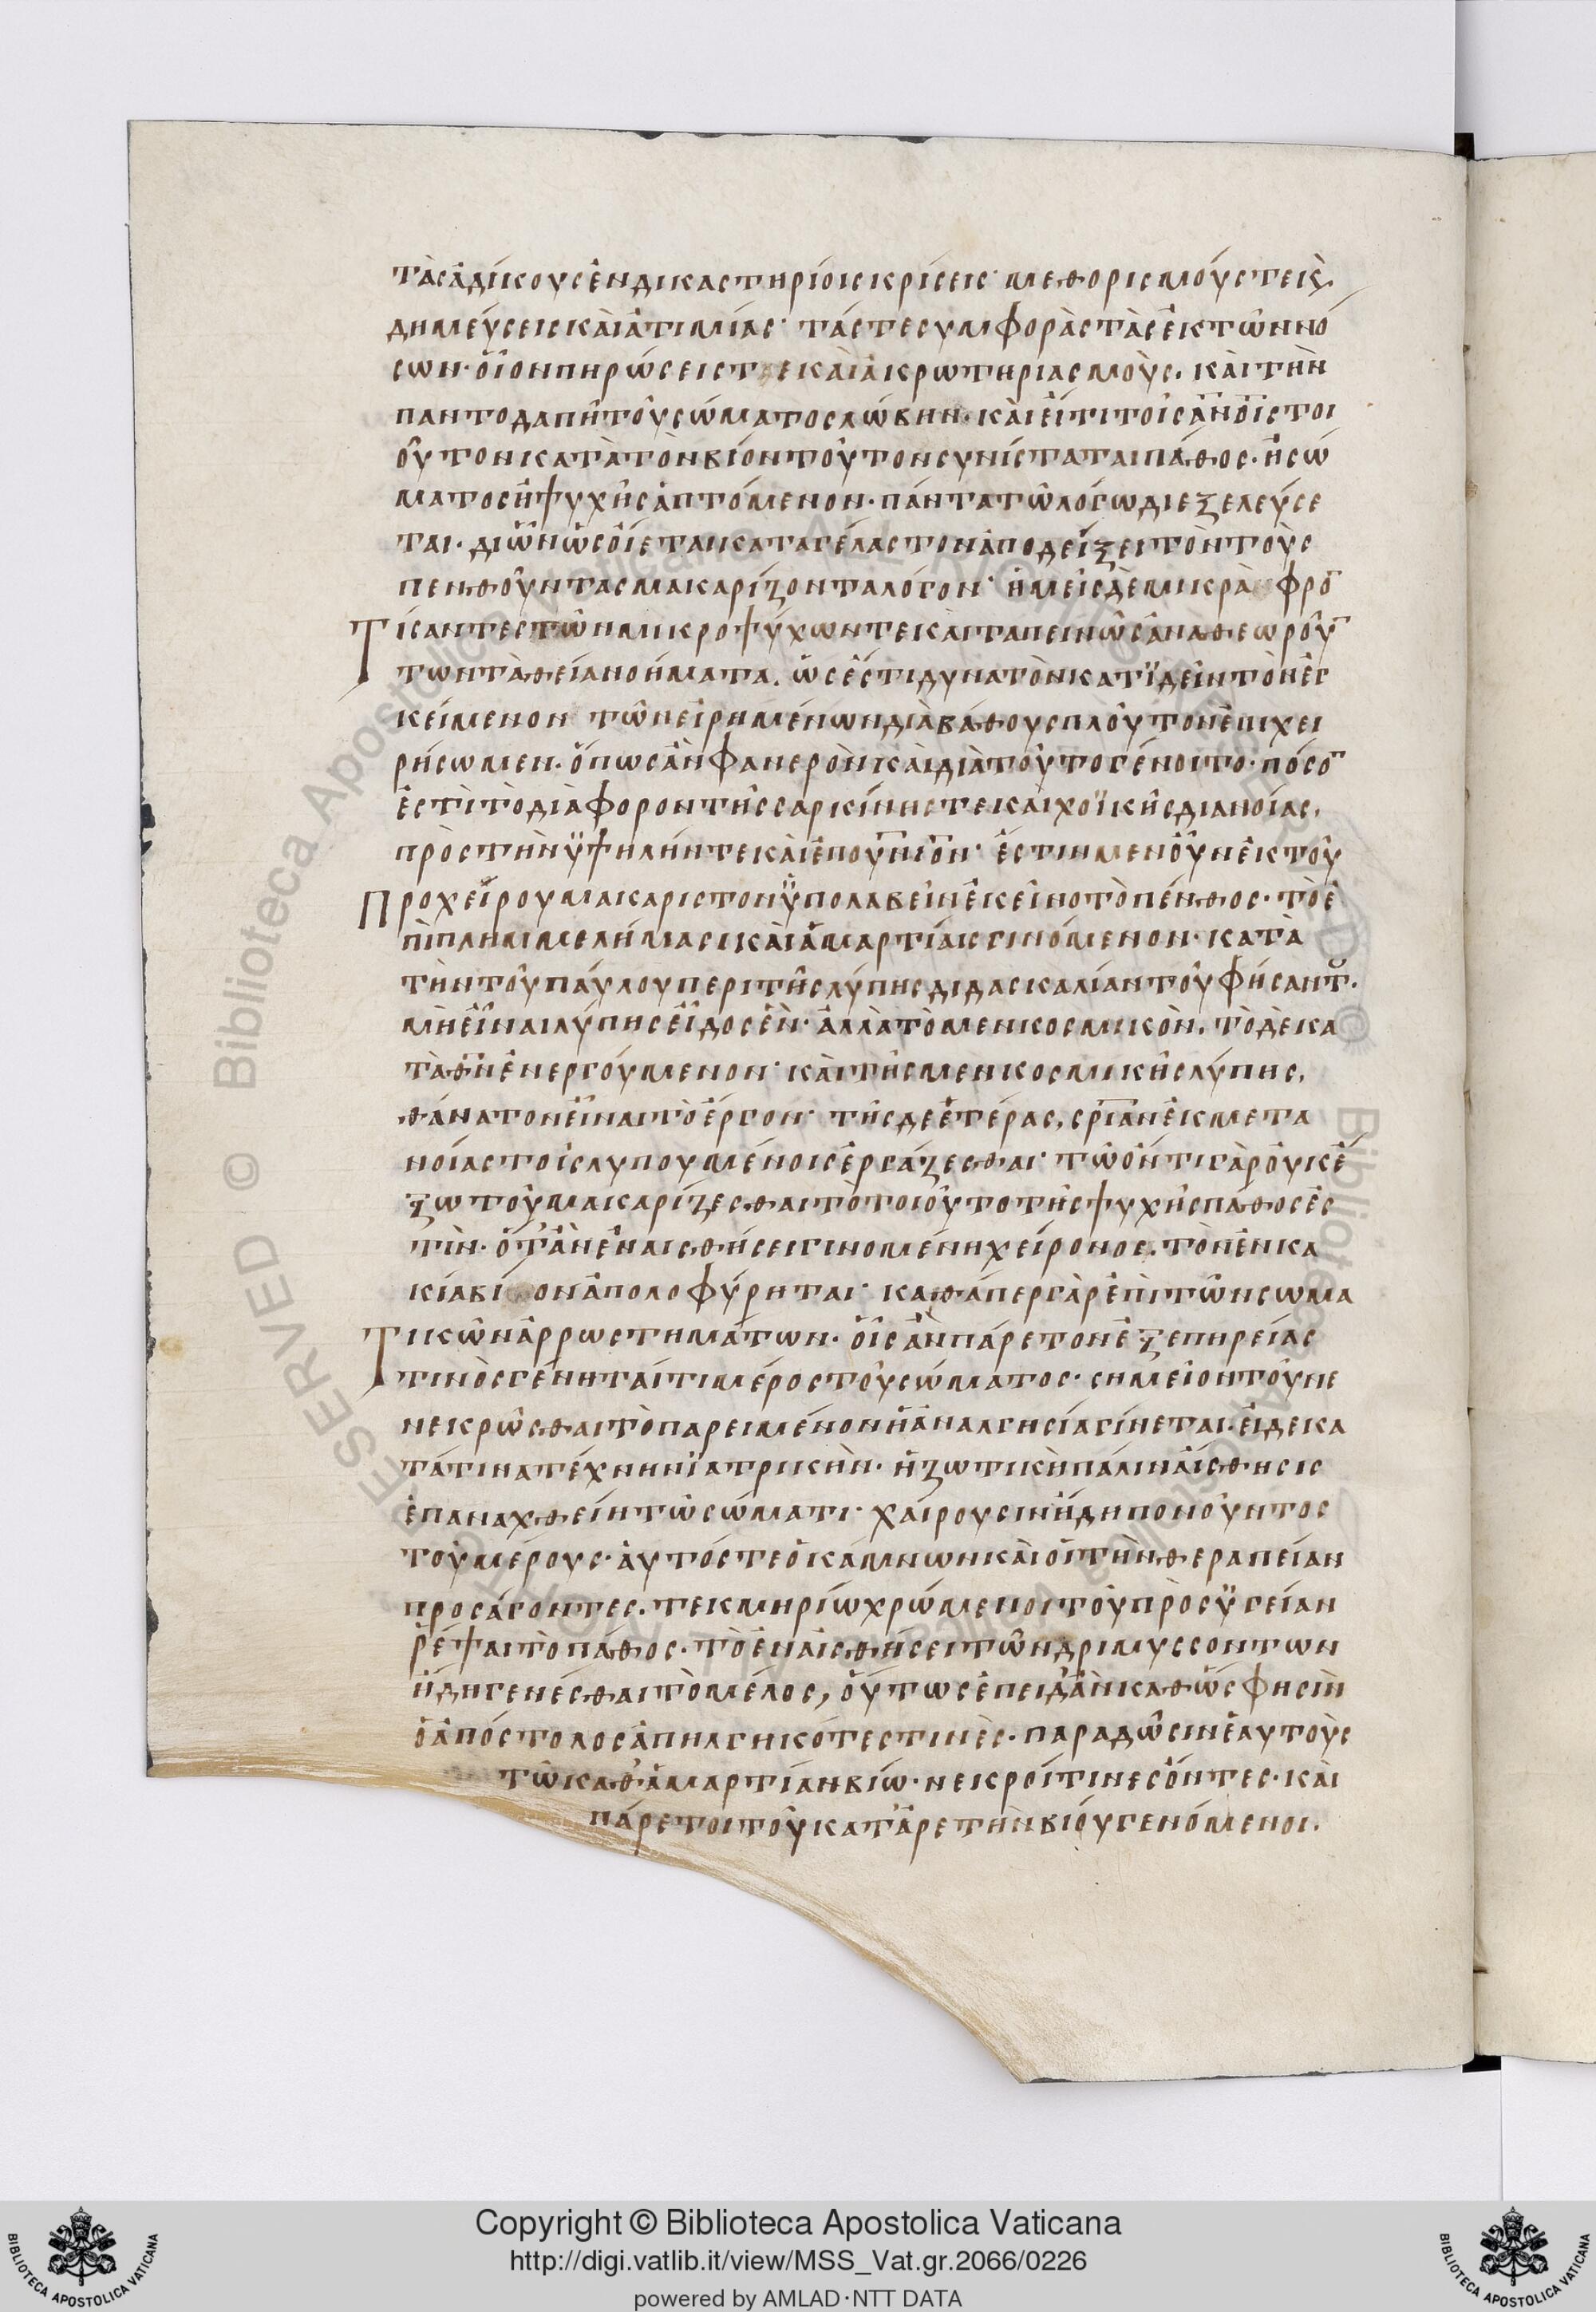 τὰς ἀδίκους ἐν δικαστηρίοις κρίσεις· μεθορισμούς τε κ̀
δημεύσεις καὶ ἀτιμίας· τάς τε συμφορὰς τὰς ἐκ τῶν νό
σων· οἷον πηρώσεις τε καὶ ἀκρωτηριασμοὺς. καὶ τὴν
παντοδαπῆ τοῦ σώματος λώβην. καὶ εἴ τι τοῖς ἀν̅ο̅ι̅ς τοι
οῦτον κατὰ τὸν βίον τοῦτον συνίσταται πάθος· ἢ σώ
ματος ἢ ψυχῆς ἁπτόμενον· πάντα τῶ λόγω διεξελεύσε
ται· δι ὧν ὡς οἴεται καταγέλαστον ἀποδείξει τὸν τοὺς
πενθοῦντας μακαρίζοντα λόγον· ἡμεῖς δὲ μικρὰ φρο̅
Τίσαντες τῶν μικροψύχων τε καὶ ταπεινῶς ἀναθεωρού̅
των τὰ θεῖα νοήματα. ὡς ἔστι δυνατὸν κατϊδεῖν τὸν ἐγ
κείμενον τῶν εἰρημένων διὰ βάθους πλοῦτον ἐπιχει
ρήσωμεν. ὅπως ἂν φανερὸν καὶ διὰ τοῦτο γένοιτο· πόσο̅
ἐστὶ τὸ διάφορον τῆς σαρκίνης τε καὶ χοϊκῆς διανοίας,
πρὸς τὴν ϋψηλήν τε καὶ ἐπου̅νιο̅ν· ἔστιν μεν οὖν ἐκ τοῦ
Προχείρου μακαριστον ϋπολαβεῖν ἐκεῖνο τὸ πένθος· τὸ ἐ
πὶ πλημμελήμασι καὶ ἁμαρτίαις γινόμενον· κατὰ
τὴν τοῦ παύλου περι τῆς λύπης διδασκαλίαν τοῦ φήσαντ.
μὴ εἶναι λύπης εἶδος ἓν· ἀλλὰ τὸ μεν κοσμικὸν, τὸ δὲ κα
τὰ θ̅ν̅ ἐνεργούμενον· καὶ τῆς μεν κοσμικῆς λύπης,
θάνατον εἶναι τὸ ἔργον· τῆς δε ἑτέρας, σρ̅ι̅αν ἐκ μετα
νοίας τοῖς λυπουμένοις ἐργάζεσθαι· τῶ ὄντι γὰρ οὐκ ἔ
ξω τοῦ μακαρίζεσθαι τὸ τοιοῦτο τῆς ψυχῆς πάθος ἐς
τὶν· ὅτ' ἂν ἐν αἰσθήσει γινομένη χείρονος. τὸν ἐν κα
κία βίον ἀπολοφύρηται· καθάπερ γὰρ ἐπὶ τῶν σωμα
Τικῶν ἀρρωστημάτων· οἷς ἂν πάρετον ἐξ επηρείας
τινὸς γένηταί τι μέρος τοῦ σώματος· σημεῖον τοῦ νε
νεκρῶσθαι τὸ παρειμένον ἡ ἀναλγησία γίνεται. εἰ δε κα
τά τινα τέχνην ϊατρικὴν· ἡ ζωτικὴ πάλιν αἴσθησις
ἐπαναχθείη τῶ σώματι· χαίρουσιν ἤδη πονοῦντος
τοῦ μέρους· αὐτός τε ὁ κάμνων καὶ οἱ τὴν θεραπείαν
προσάγοντες. τεκμηρίω χρώμενοι τοῦ πρὸς ϋγείαν
ῥέψαι τὸ πάθος· τὸ ἐν αἰσθήσει τῶν δριμυσσοντων
ἤδη γενέσθαι τὸ μέλος, οὕτως ἐπειδ' ἂν καθώς φησὶν
ὁ ἀπόστολος ἀπηλγηκότες τινὲς· παραδῶσιν ἑαυτοὺς
τῶ καθ' ἁμαρτίαν βίω· νεκροί τινες ὄντες· καὶ
πάρετοι τοῦ κατ' ἀρετὴν βίου γενόμενοι.
Copyright © Biblioteca Apostolica Vaticana
http://digi.vatlib.it/view/MSS_Vat.gr.2066/0226
powered by AMLAD·NTT DATA